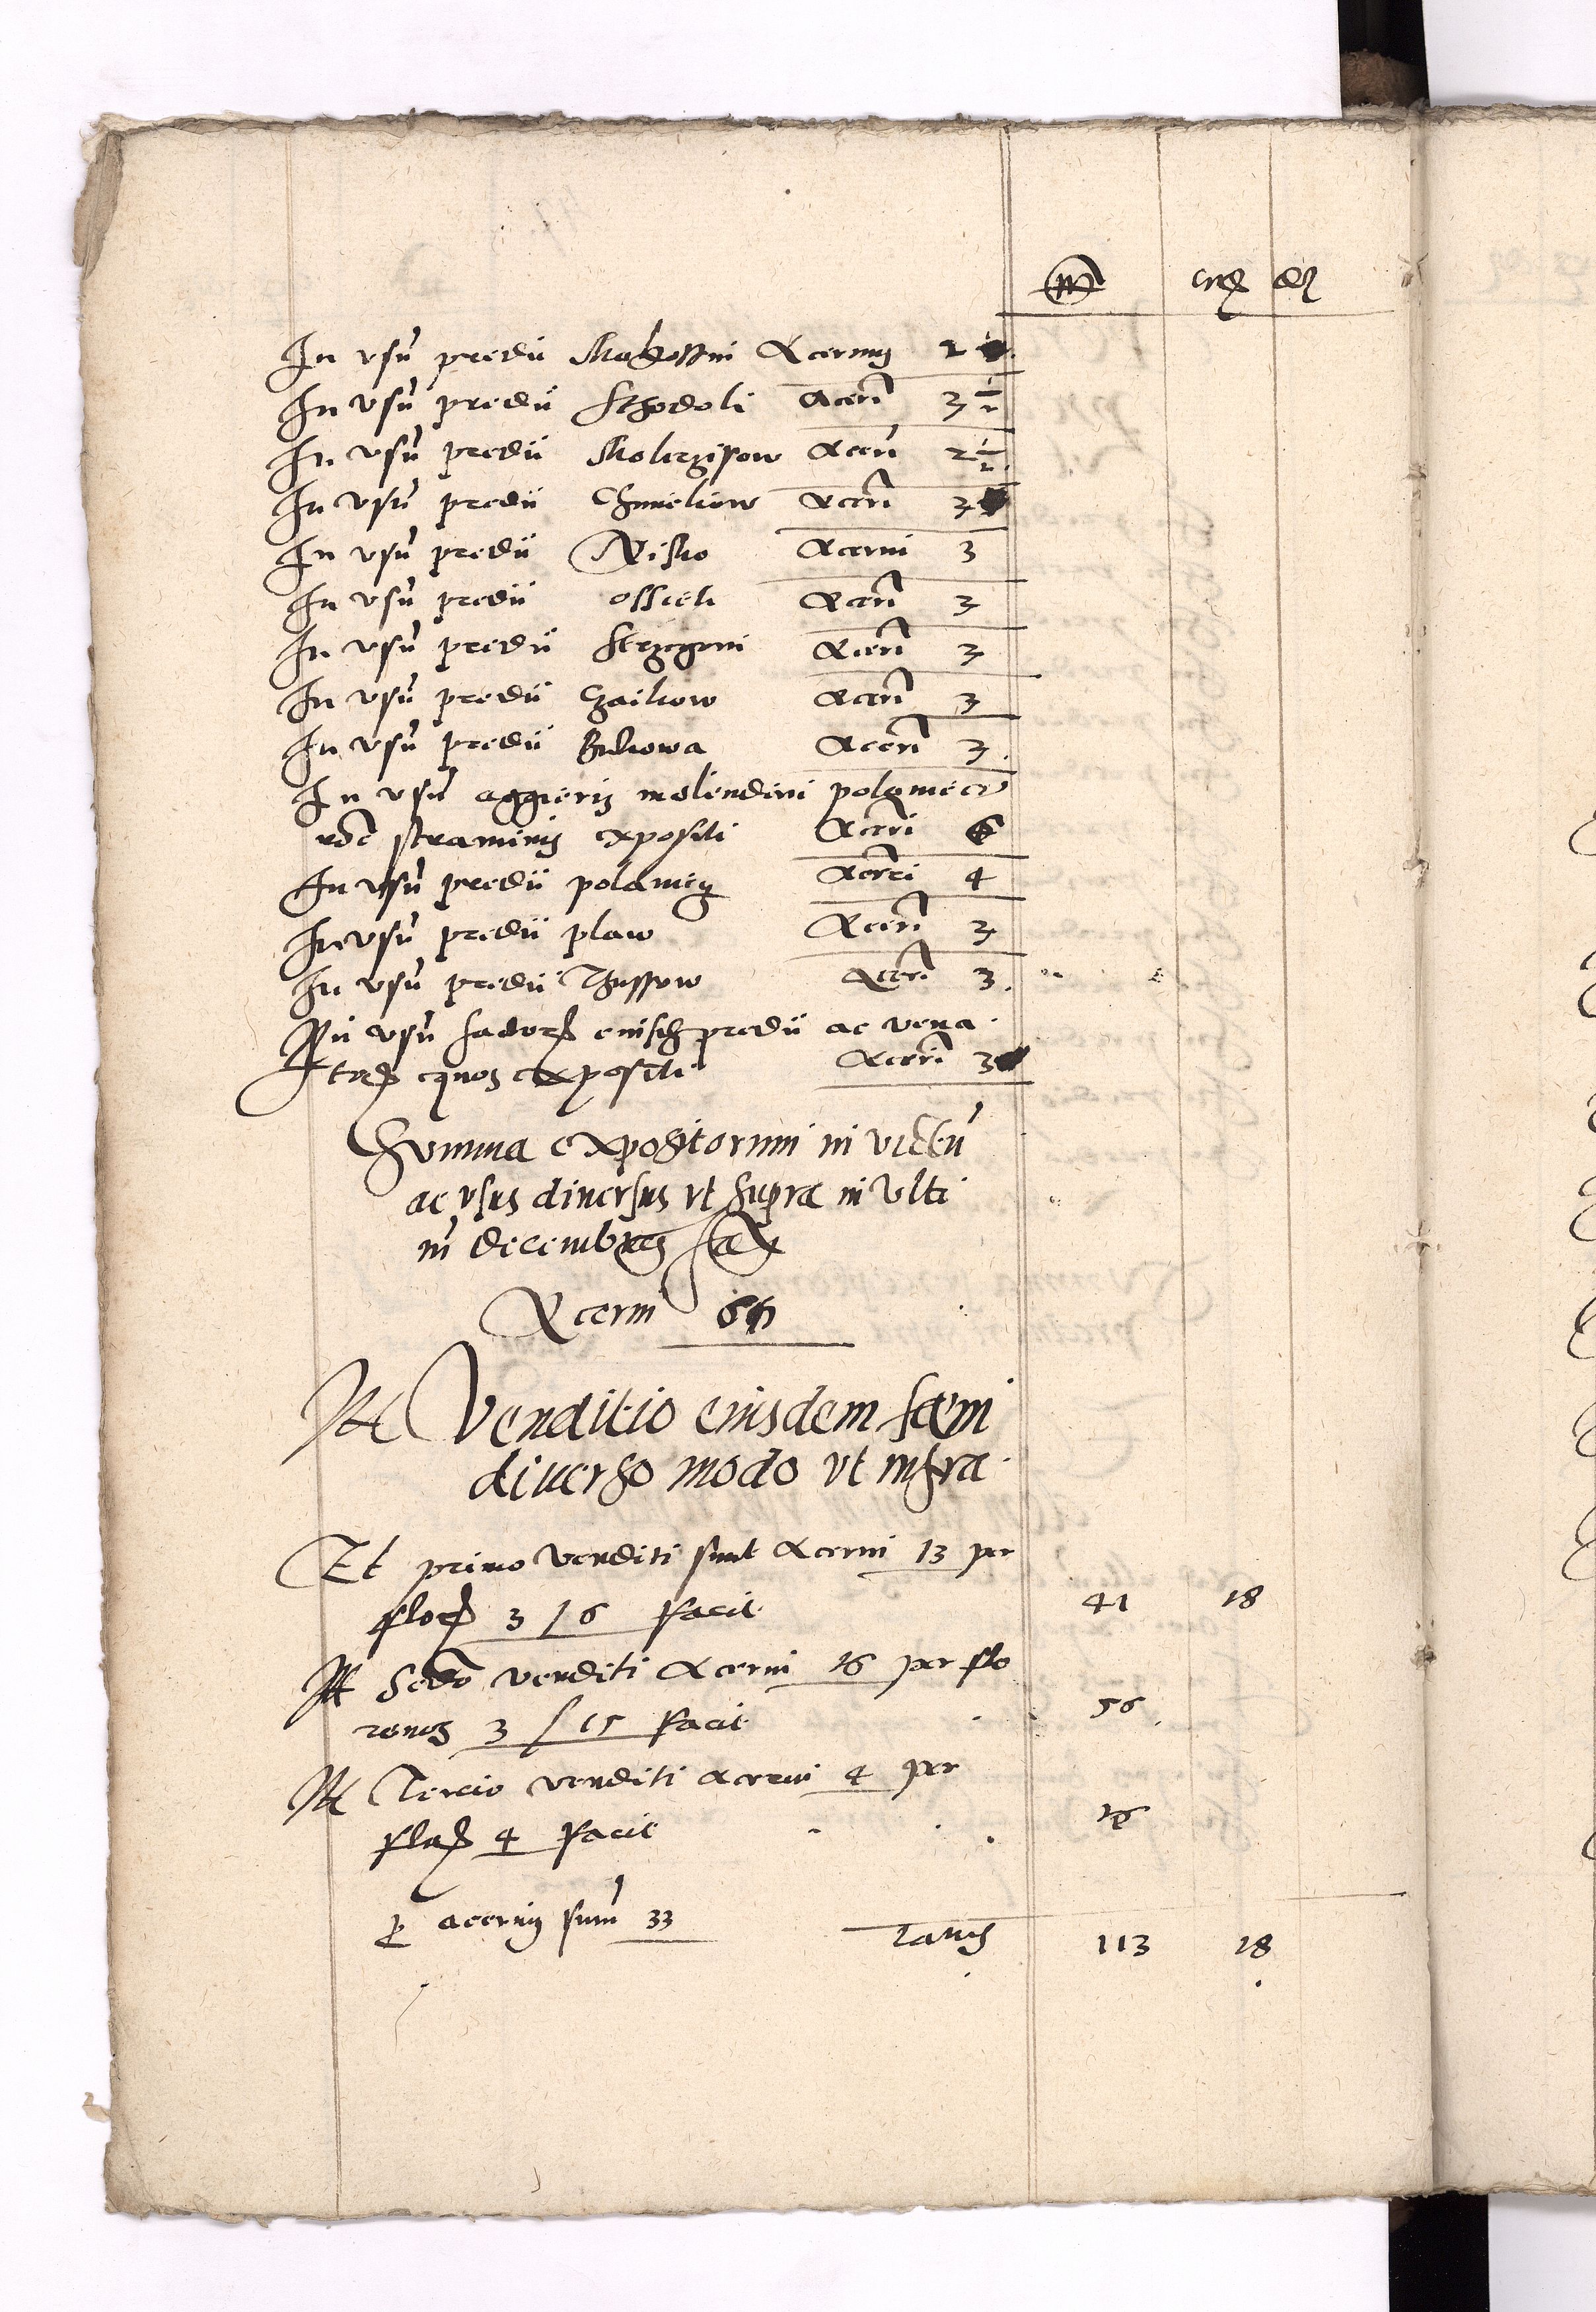 m grs d
In vsu predii Makossin Acervus 2
In vsu predii Schodoli Acervi 3 1/2
In vsu predii Mokrzisow Acervi 2 1/2
In vsu predii Chmielow Acervi 3
In vsu predii Nisko Acervi 3
In vsu predii ossieli Acervi 3
In vsu predii Strzegom Acervi 3
In vsu predii Czaikow Acervi 3
In vsu predii Bukowa Acervi 3
In vsu aggeris molendini polamecz
straminis expositi Acervi 6
In vsu predii polamecz Acervi 4
In vsu predii plaw Acervi 3
In vsu predii Thussow Acervi 3
In vsu eiusdem predii ac vena
equos expositi Acervi 3
Summa expositorum in victu
ac vsus diuersus vt supra in vlti
m decembris
Acervi
It Venditio eiusdem faeni
diuerso modo vt infra
Et primo venditi sunt Acervi 13 per
flor 3 / 6 facit 41 18
It Secdo venditi Acervi 16 per flo
renos 3 / 15 facit 56
It Tercio venditi acervi 4 per
flor 4 facit 16
p acervis sum 33 Latus 113 18